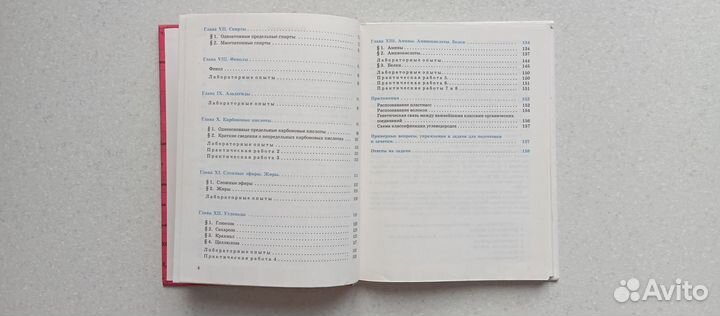 Глава VII. Спирты
§ 1. Одноатомные предельные спирты
§ 2. Многоатомные спирты
Глава VIII. Фенолы
Фенол
Лабораторные опыты
Глава IX. Альдегиды
Лабораторные опыты
Глава X. Карбоновые кислоты
§ 1. Одноосновные предельные карбоновые кислоты
§ 2. Краткие сведения о непредельных карбоновых кислотах
Лабораторные опыты
Практическая работа 2
Практическая работа 3
Глава XI. Сложные эфиры. Жиры.
§ 1. Сложные эфиры
§ 2. Жиры
Лабораторные опыты
Глава XII. Углеводы
§ 1. Глюкоза
§ 2. Сахароза
§ 3. Крахмал
§ 4. Целлюлоза
Лабораторные опыты
Практическая работа 4
Глава XIII. Амины. Аминокислоты. Белки 134
§ 1. Амины 134
§ 2. Аминокислоты 137
Лабораторные опыты 141
§ 3. Белки 145
Лабораторные опыты 150
Практическая работа 5 150
Практическая работа 6 151
Практические работы 7 и 8 151
Приложения 152
Распознавание пластмасс
Распознавание волокон
Генетическая связь между важнейшими классами органических
соединений 156
Схема классификации углеводородов
Примерные вопросы, упражнения и задачи для подготовки
к зачетам 157
Ответы на задачи 158
Avito